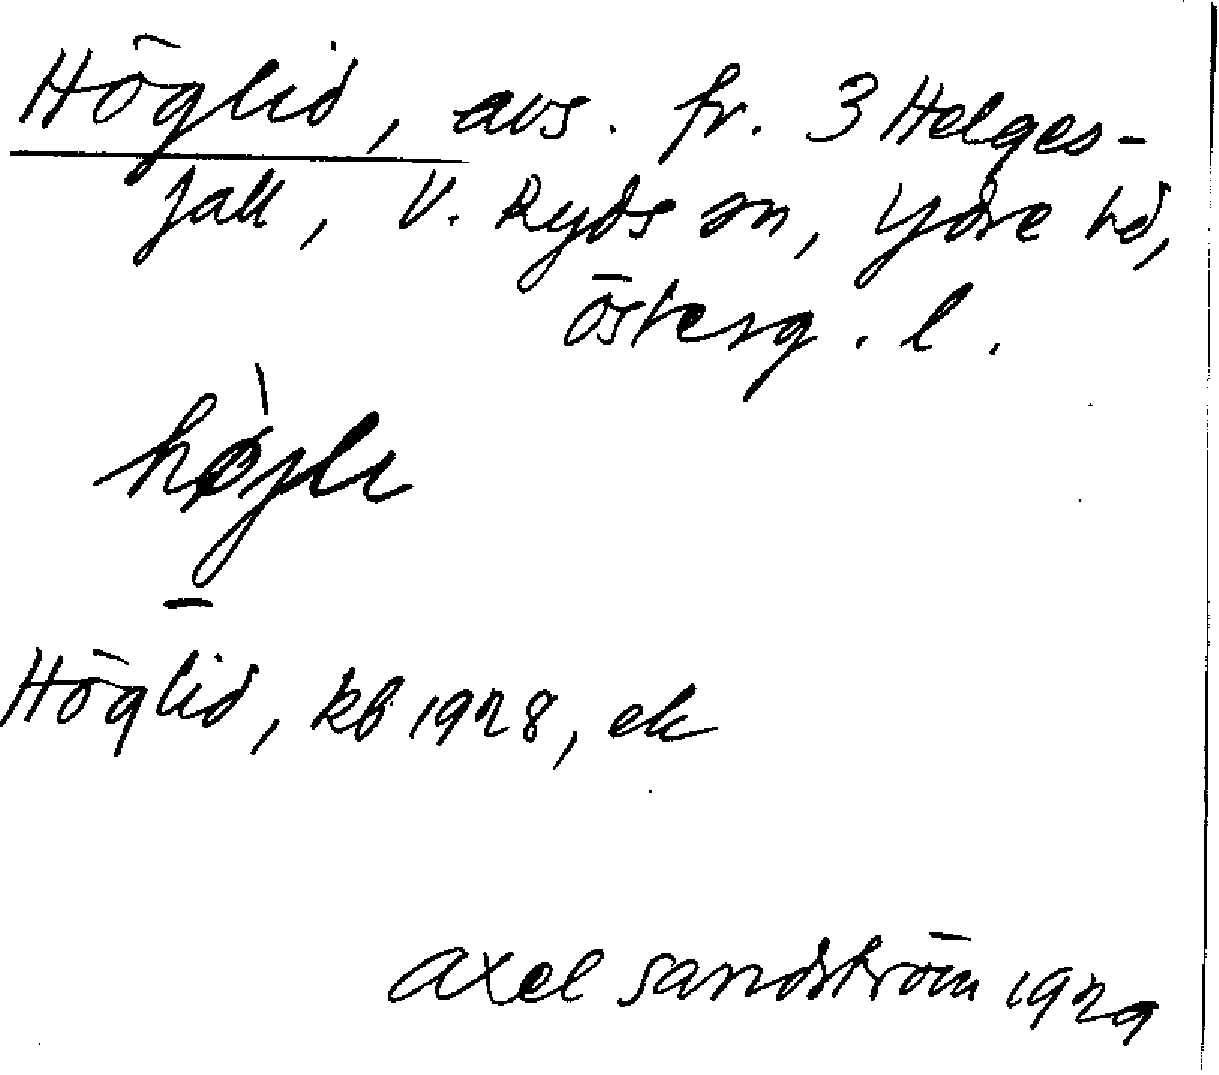 Höglid, avs. fr. 3 Helges-
fall, V. Ryds sn, Ydre hd,
Österg. l.
högli
Höglid, kb 1928, ek
Axel Sandström 1929